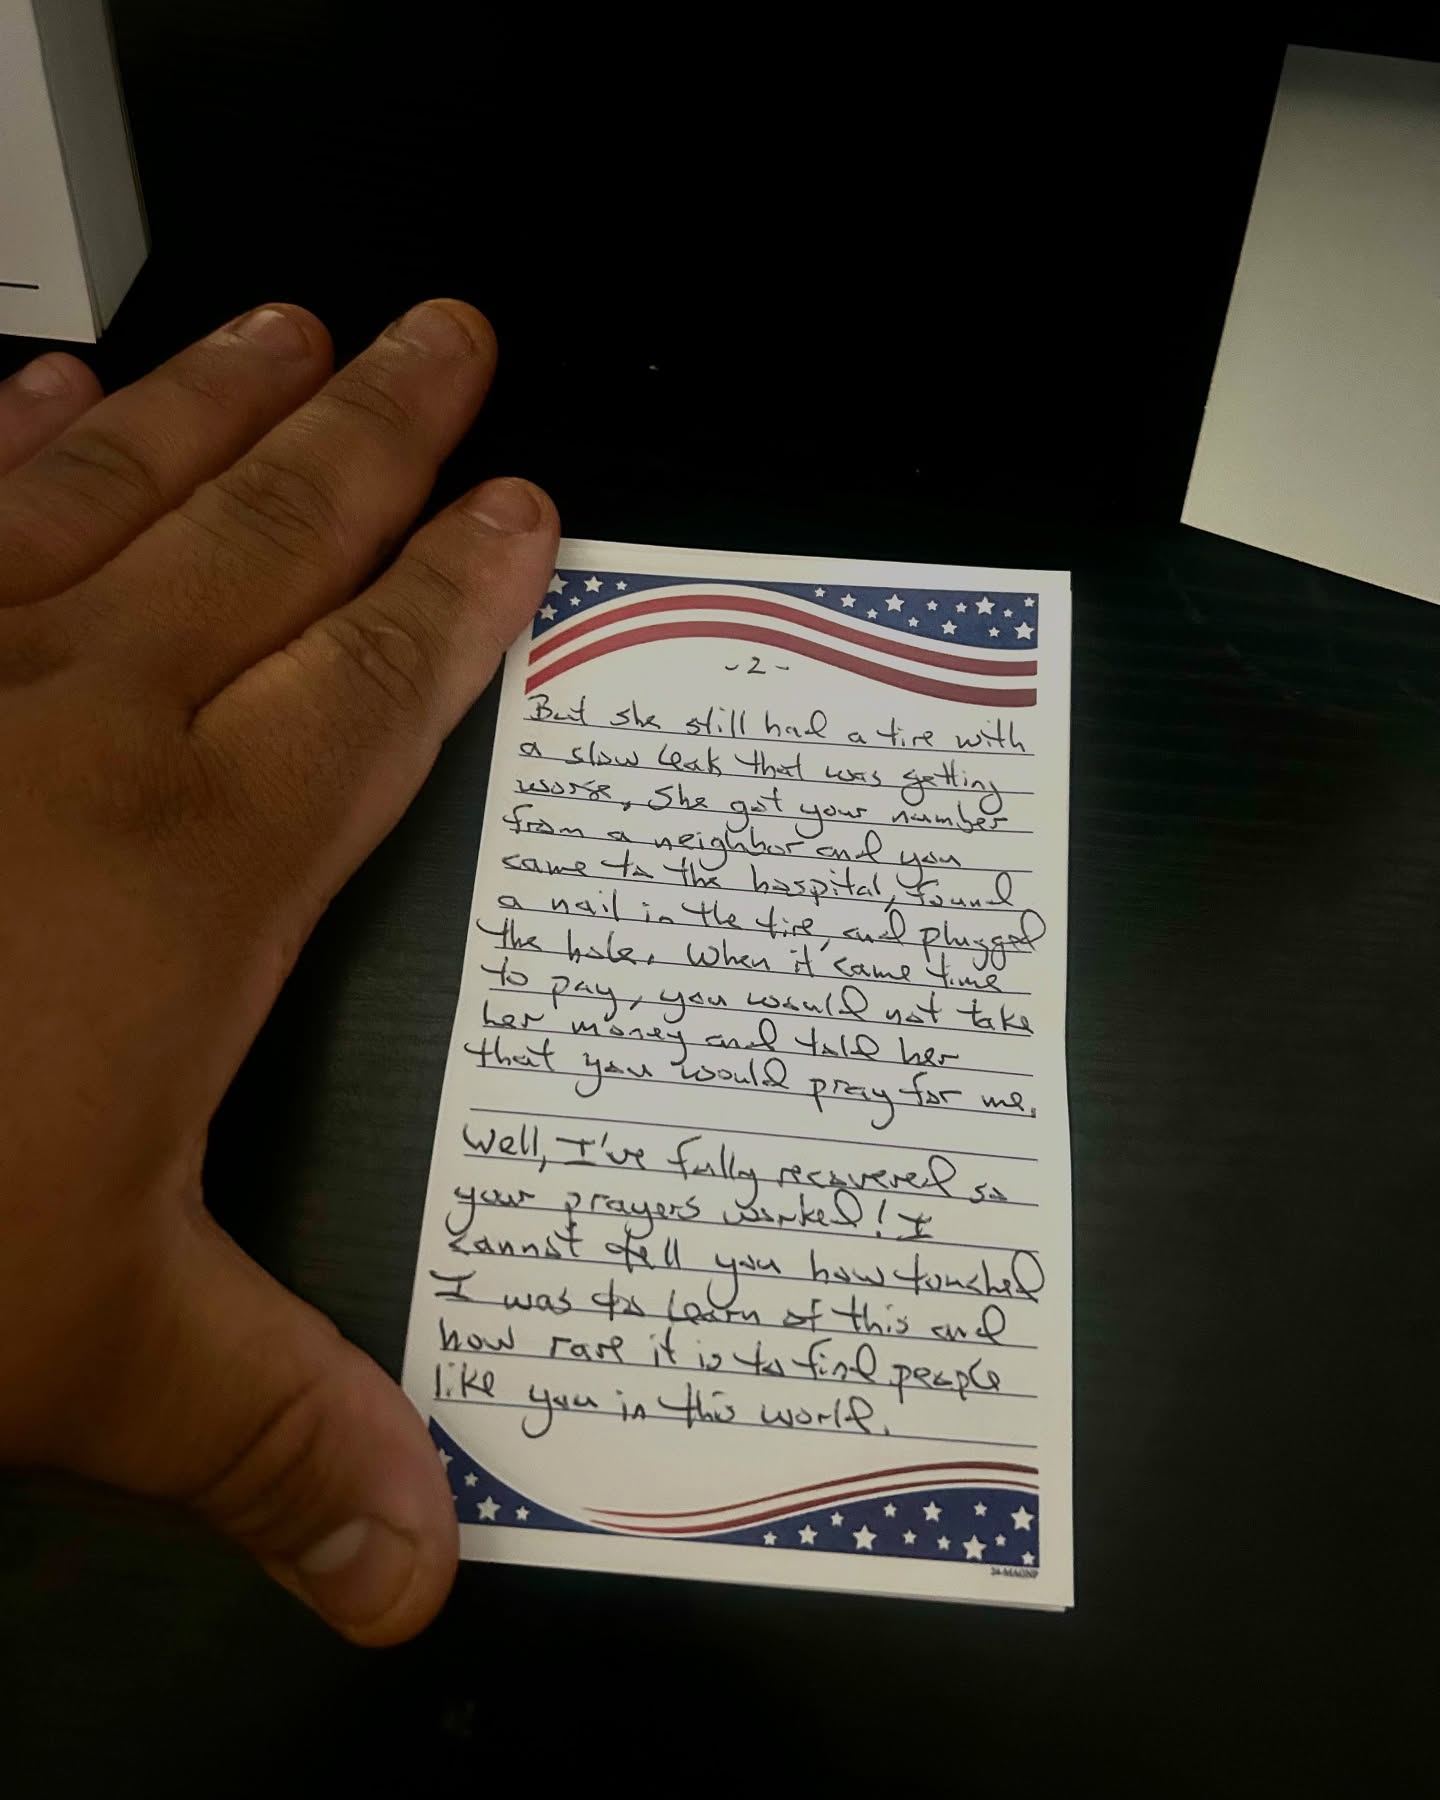 - 2 -
But she still had a tire with
a slow leak that was getting
worse. She got your number
from a neighbor and you
came to the hospital, found
a nail in the tire, and plugged
the hole. When it came time
to pay, you would not take
her money and told her
that you would pray for me.
Well, I've fully recovered so
your prayers worked! I
cannot tell you how touched
I was to learn of this and
how rare it is to find people
like you in this world.